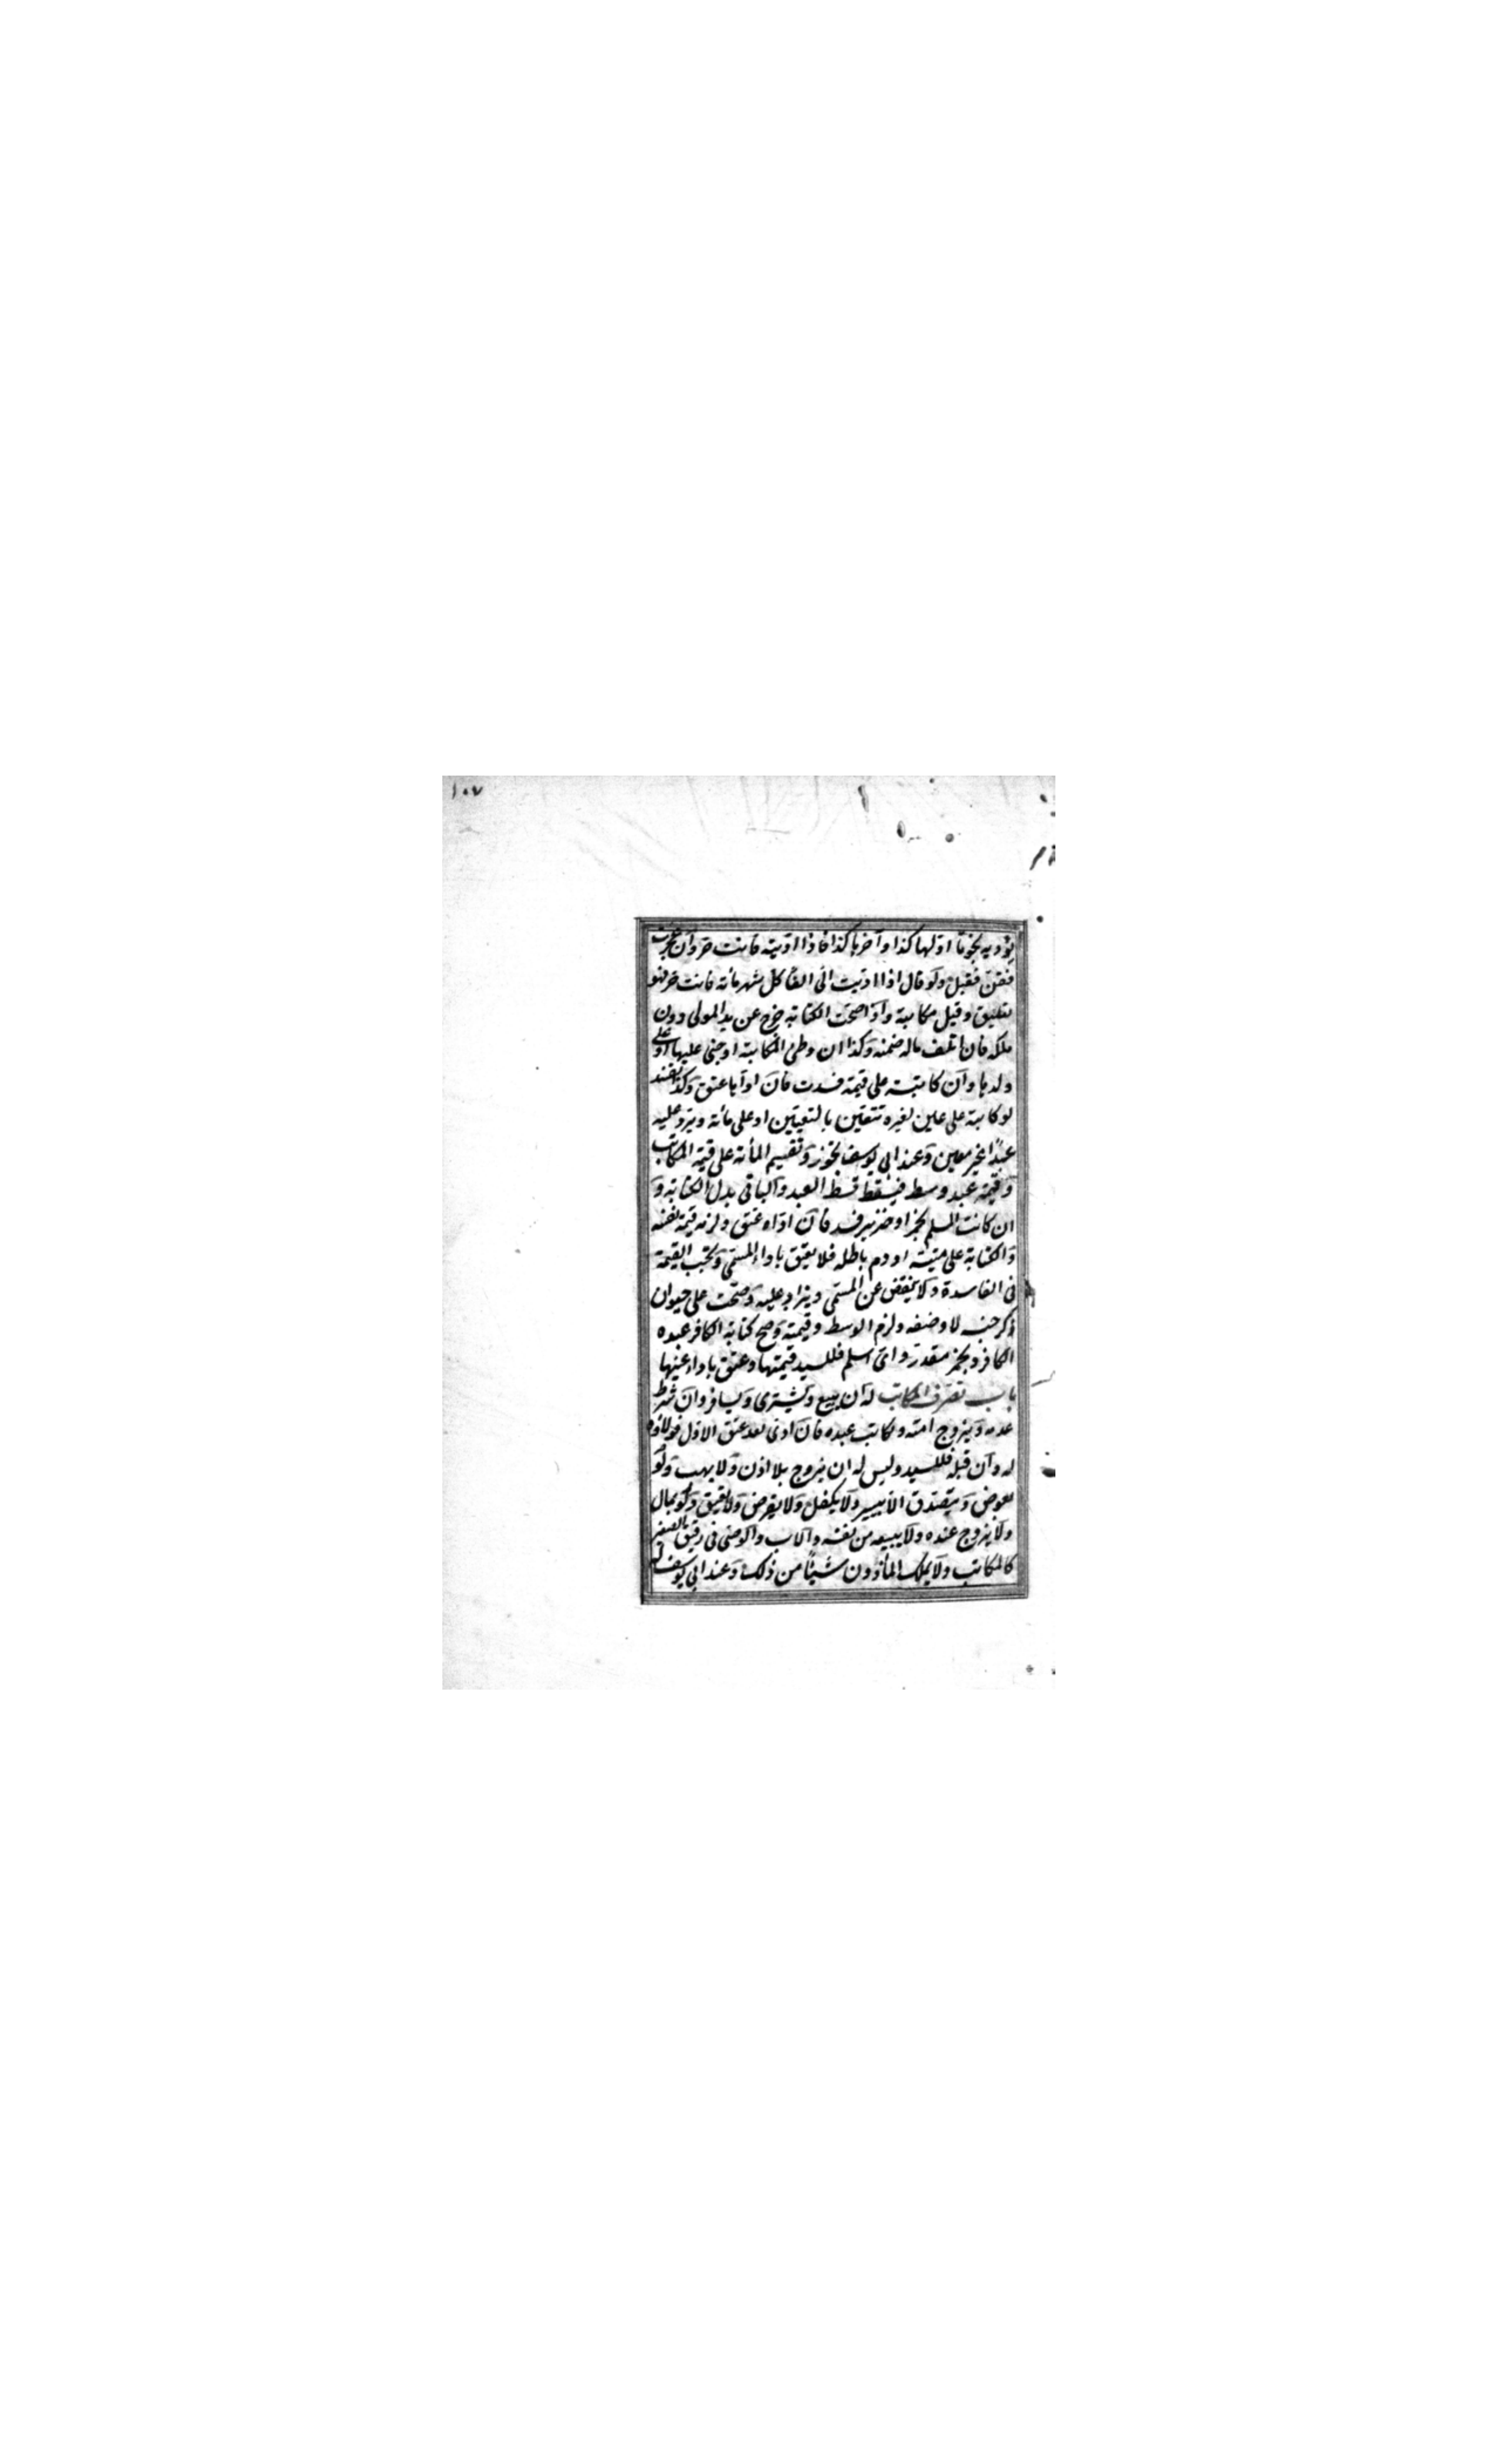 ١٠٧
تؤديه نجوما اولها كذا وآخرها كذا فاذا اديته فانت حر وان عجزت
فقن فقبل ولو قال اذا اديت الى الفا كل شهر مائة فانت حر فهو
تعليق وقيل مكاتبة واذا صحت الكتابة خرج عن يد المولى دون
ملكه فان اتلف ماله ضمنه وكذا ان وطئ المكاتبة او جنى عليها او على
ولدها وان كاتبه على قيمته فسدت فان اداها عتق وكذا تفسد
لو كاتبه على عين لغيره تتعين بالتعيين او على مائة ويرد عليه
عبدا غير معين وعند ابى يوسف تجوز وتقسم المائة على قيمة المكاتب
وقيمة عبد وسط فيسقط قسط العبد والباقى بدل الكتابة و
ان كاتب المسلم بخمر او خنزير فسد فان اداه عتق ولزمه قيمة نفسه
والكتابة على ميتة او دم باطلة فلا يعتق باداء المسمى وتجب القيمة
فى الفاسدة ولا ينقص عن المسمى ويزاد عليه وصحت على حيوان
ذكر جنسه لا وصفه ولزم الوسط وقيمته وصح كتابة الكافر عبده
الكافر بخمر مقدر واى اسلم فللسيد قيمتها وعتق باداء عينها
باب تصرف المكاتب له ان يبيع ويشترى ويسافر وان شرط
عدمه ويزوج امته ويكاتب عبده فان ادى بعد عتق الاول فولاؤه
له وان قبله فللسيد وليس له ان يتزوج بلا اذن ولا يهب ولو
بعوض ويتصدق الا بيسير ولا يكفل ولا يقرض ولا يعتق ولو بمال
ولا يزوج عبده ولا يبيعه من نفسه والاب والوصى فى رقيق الصغير
كالمكاتب ولا يملك المأذون شيئا من ذلك وعند ابى يوسف له